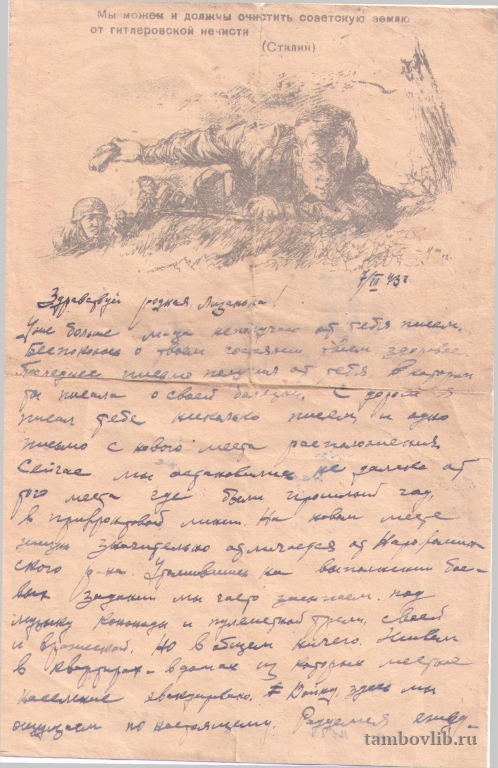 Мы можем и должны очистить советскую землю
от гитлеровской нечисти
(Сталин)
7/III 43 г.
Здравствуй родная Лизанька!
Уже больше м-ца неполучаю от тебя писем,
Беспокоюсь о твоем состоянии, твоем здоровье.
Последнее письмо получил от тебя в котором
ты писала о своей болезни. С дороги я
писал тебе несколько писем, и одно
письмо с нового места расположения.
Сейчас мы остановились не далеко от
того места где были прошлый год,
в прифронтовой линии. На новом месте
жизнь значительно отличается от Нарофомин
ского р-на. Утомившись на выполнении бое-
вых заданий мы часто засыпаем под
музыку канонады и пулеметной трели, своей
и вражеской. Но в общем ничего. Живем
в квартирах - в домах из которых местное
население эвакуировано. Войну здесь мы
ощущаем по настоящему. Радуемся ежед-
tambovlib.ru